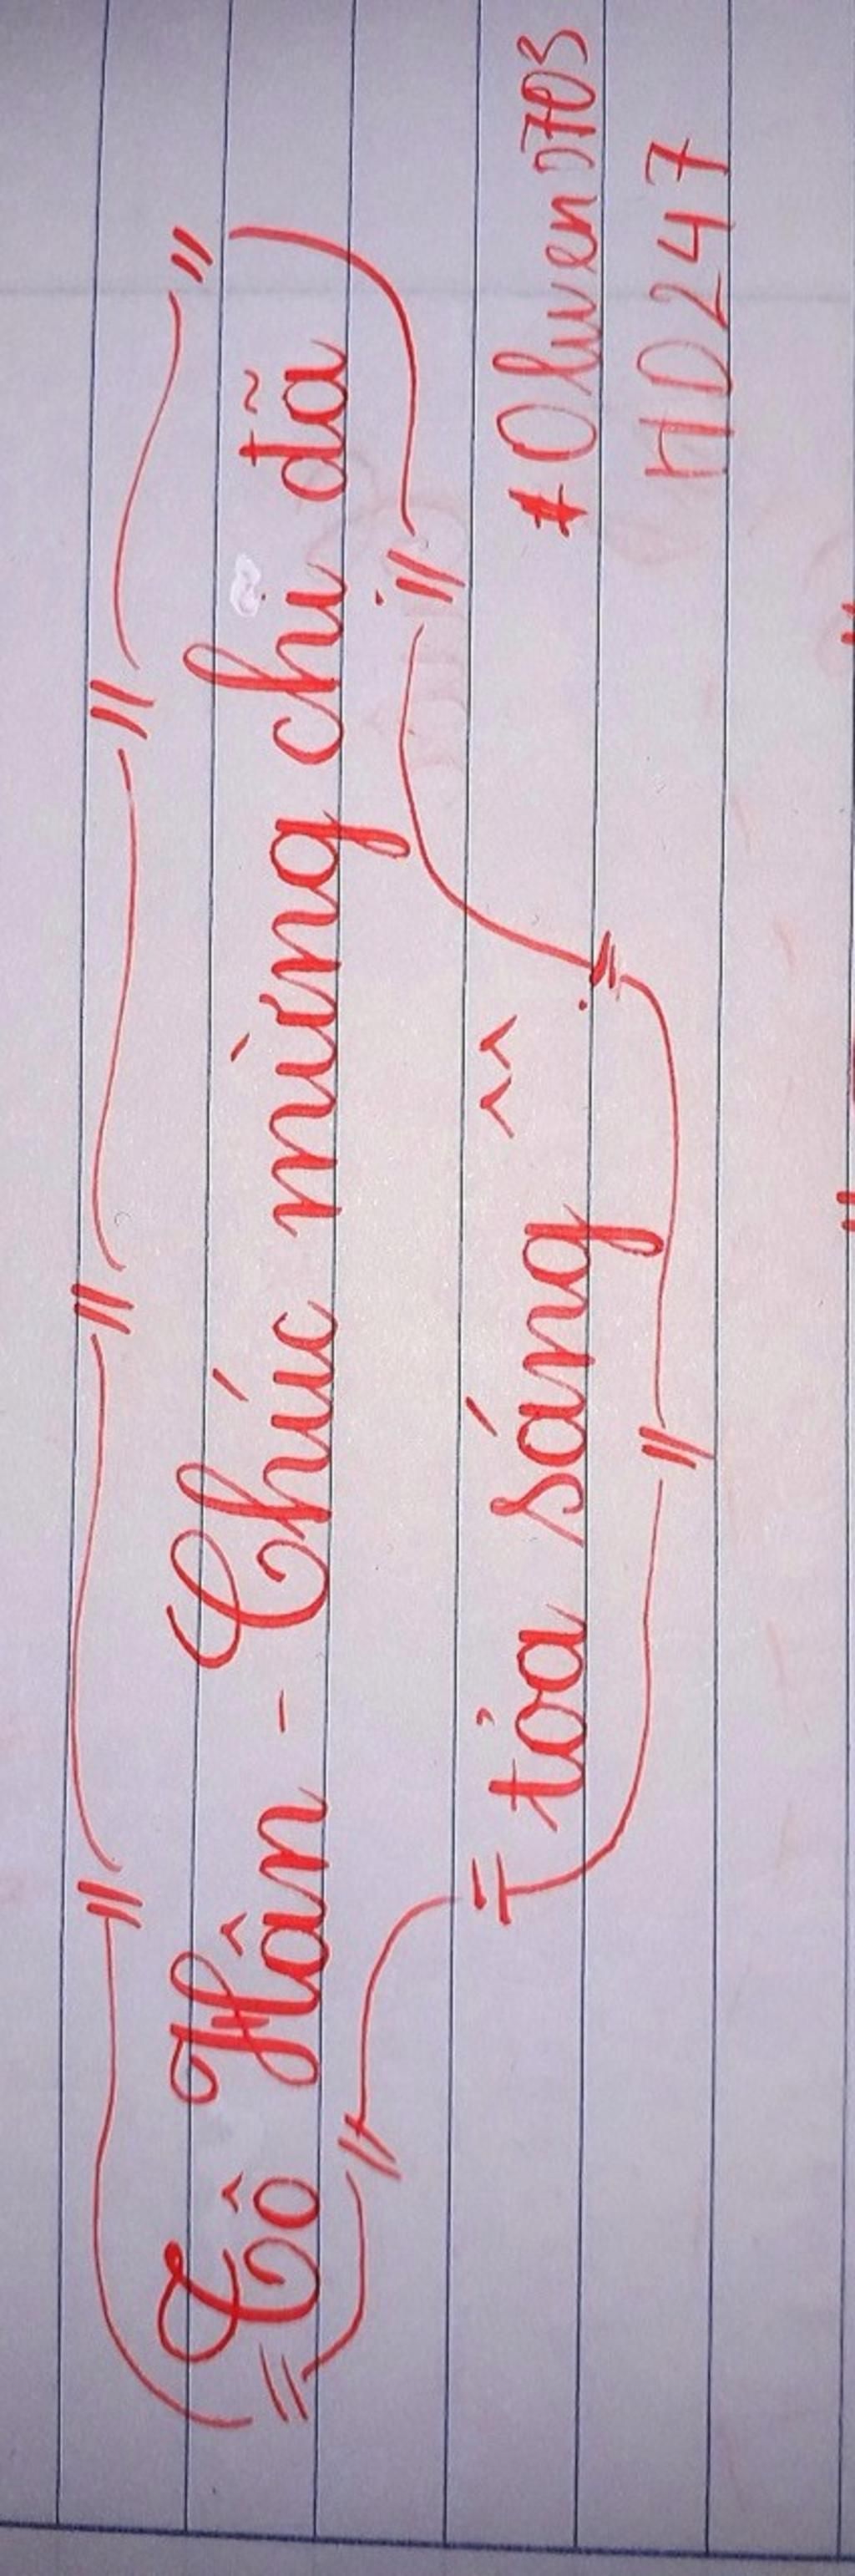 Tô Hân - Chúc mừng chi đã
tỏa sáng ^^
#Oliwen0703
HD247